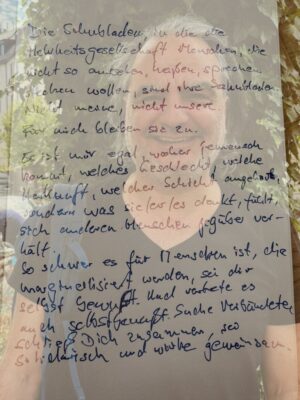 Die Schubladen, in die die
Mehrheitsgesellschaft Menschen, die
nicht so aussehen, heißen, sprechen
stecken wollen, sind ihre Schubladen.
Nicht meine, nicht unsere
Für mich bleiben sie zu.
Es ist mir egal, woher jemensch
kommt, welches Geschlecht, welche
Herkunft, welcher Schicht angehört,
sondern was sie/er/es denkt, fühlt,
sich anderen Menschen gegüber ver-
hält.
So schwer es für Menschen ist, die
marginalisiert werden, sei dir
selbst bewusst. Und vertrete es
auch selbstbewusst. Suche Verbündete,
schließ Dich zusammen, sei
solidarisch und wirke gemeinsam.